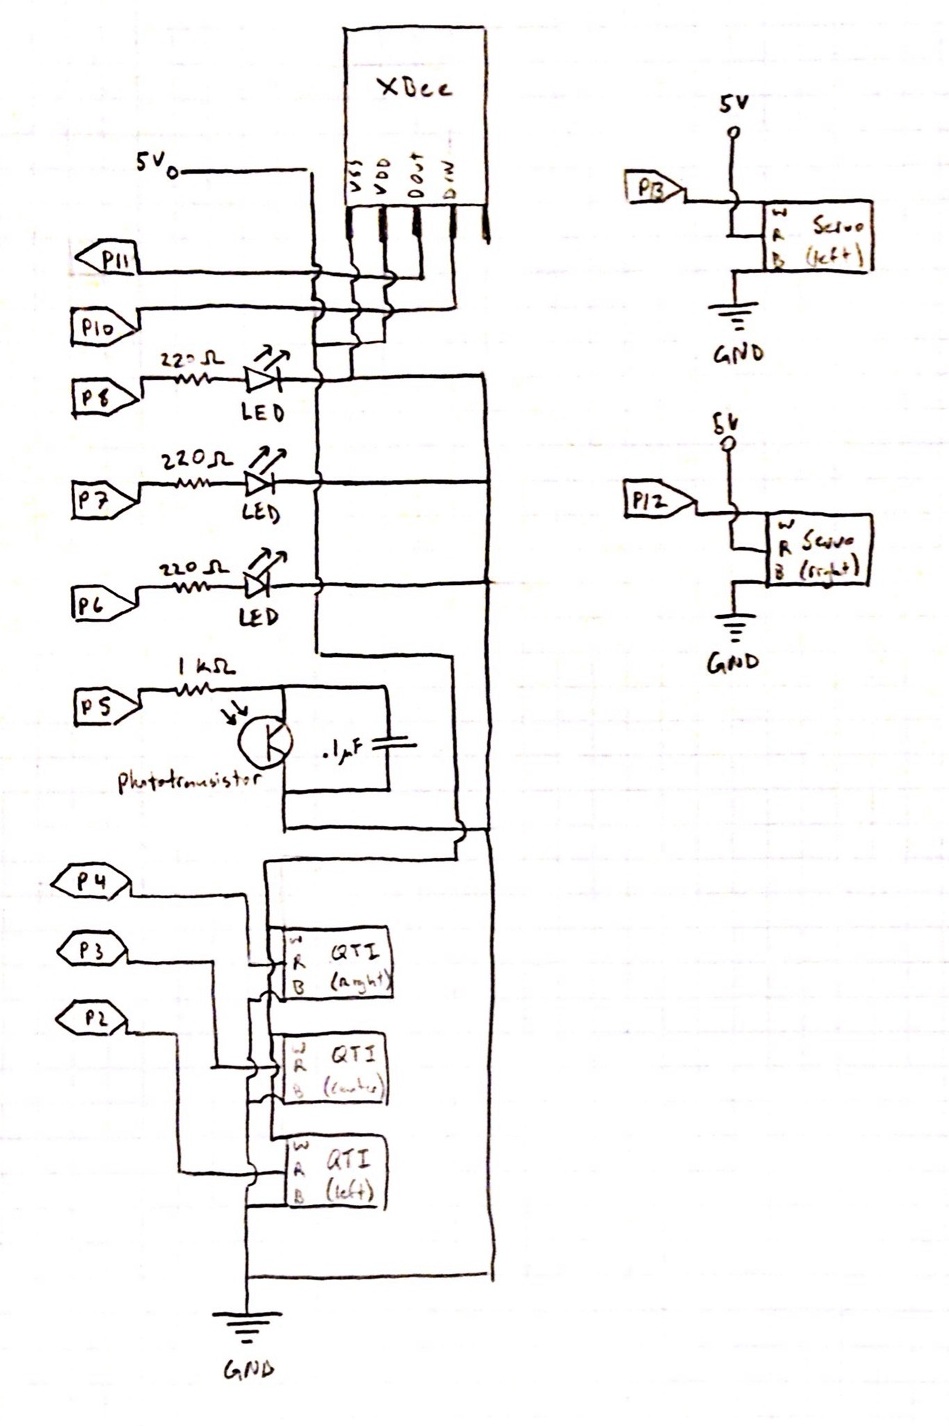 XBee
5V
VSS
VDD
DOUT
DIN
P11
P10
220 Ω
P8
LED
220Ω
P7
LED
220Ω
P6
LED
1 kΩ
P5
.1µF
phototransistor
P4
W
R QTI
B (right)
P3
W
R QTI
B (center)
P2
W
R QTI
B (left)
GND
5V
P13
W
R Servo
B (left)
GND
5V
P12
W
R Servo
B (right)
GND